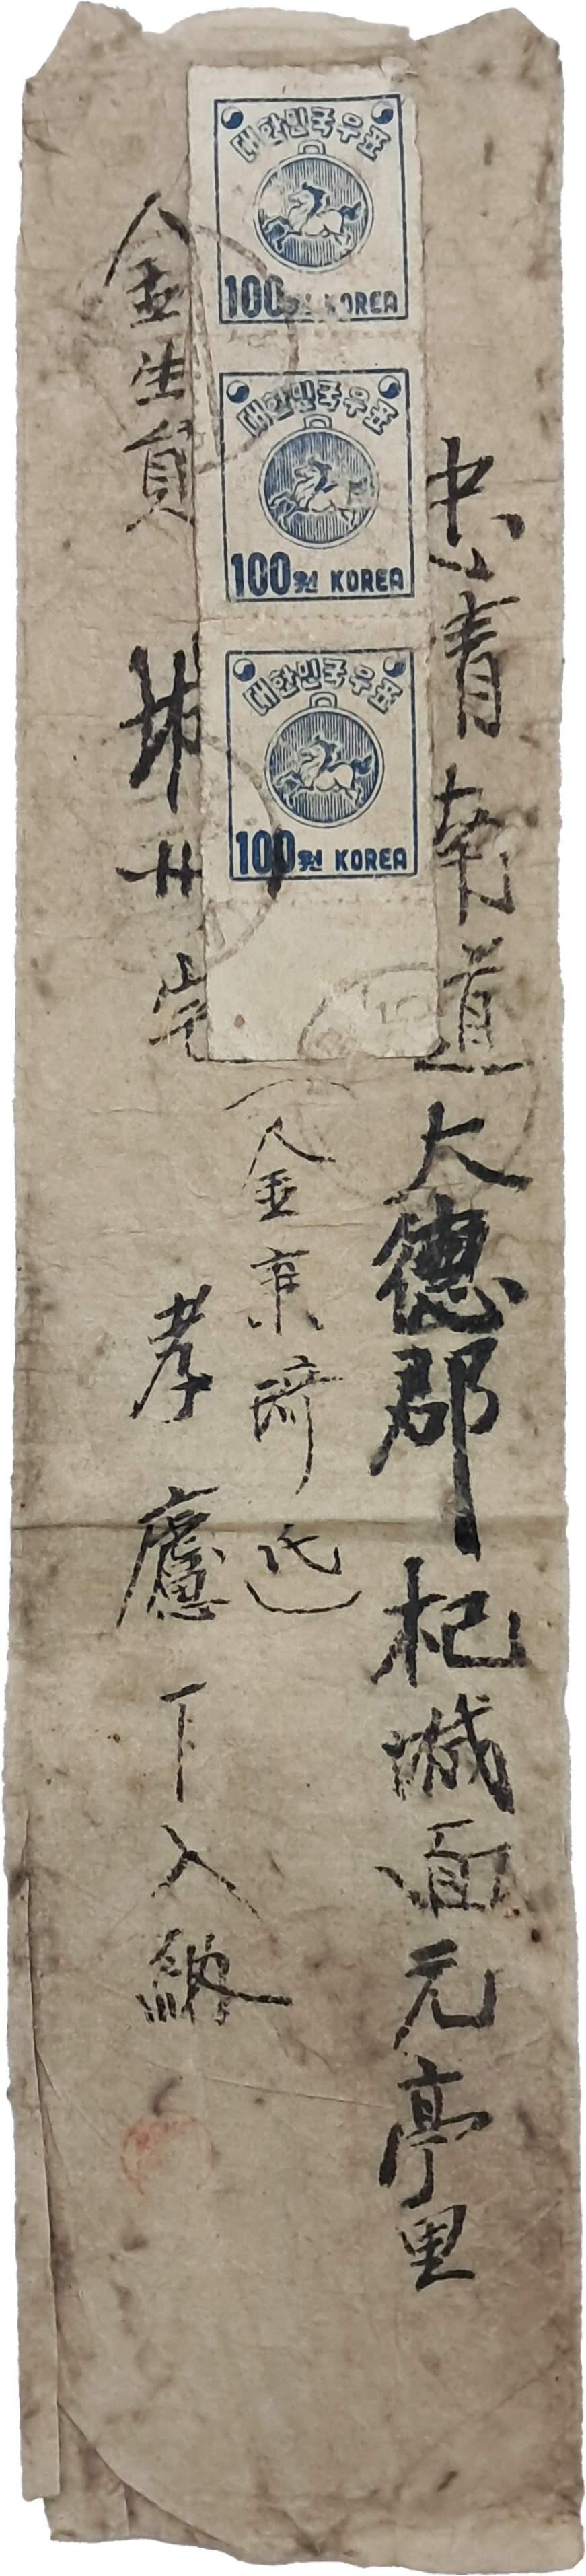 忠青南道大德郡杞城面元亭里
(金東琦氏)
金生員 宅
孝廬下入納
대한민국우표
100원 KOREA
대한민국우표
100원 KOREA
대한민국우표
100원 KOREA